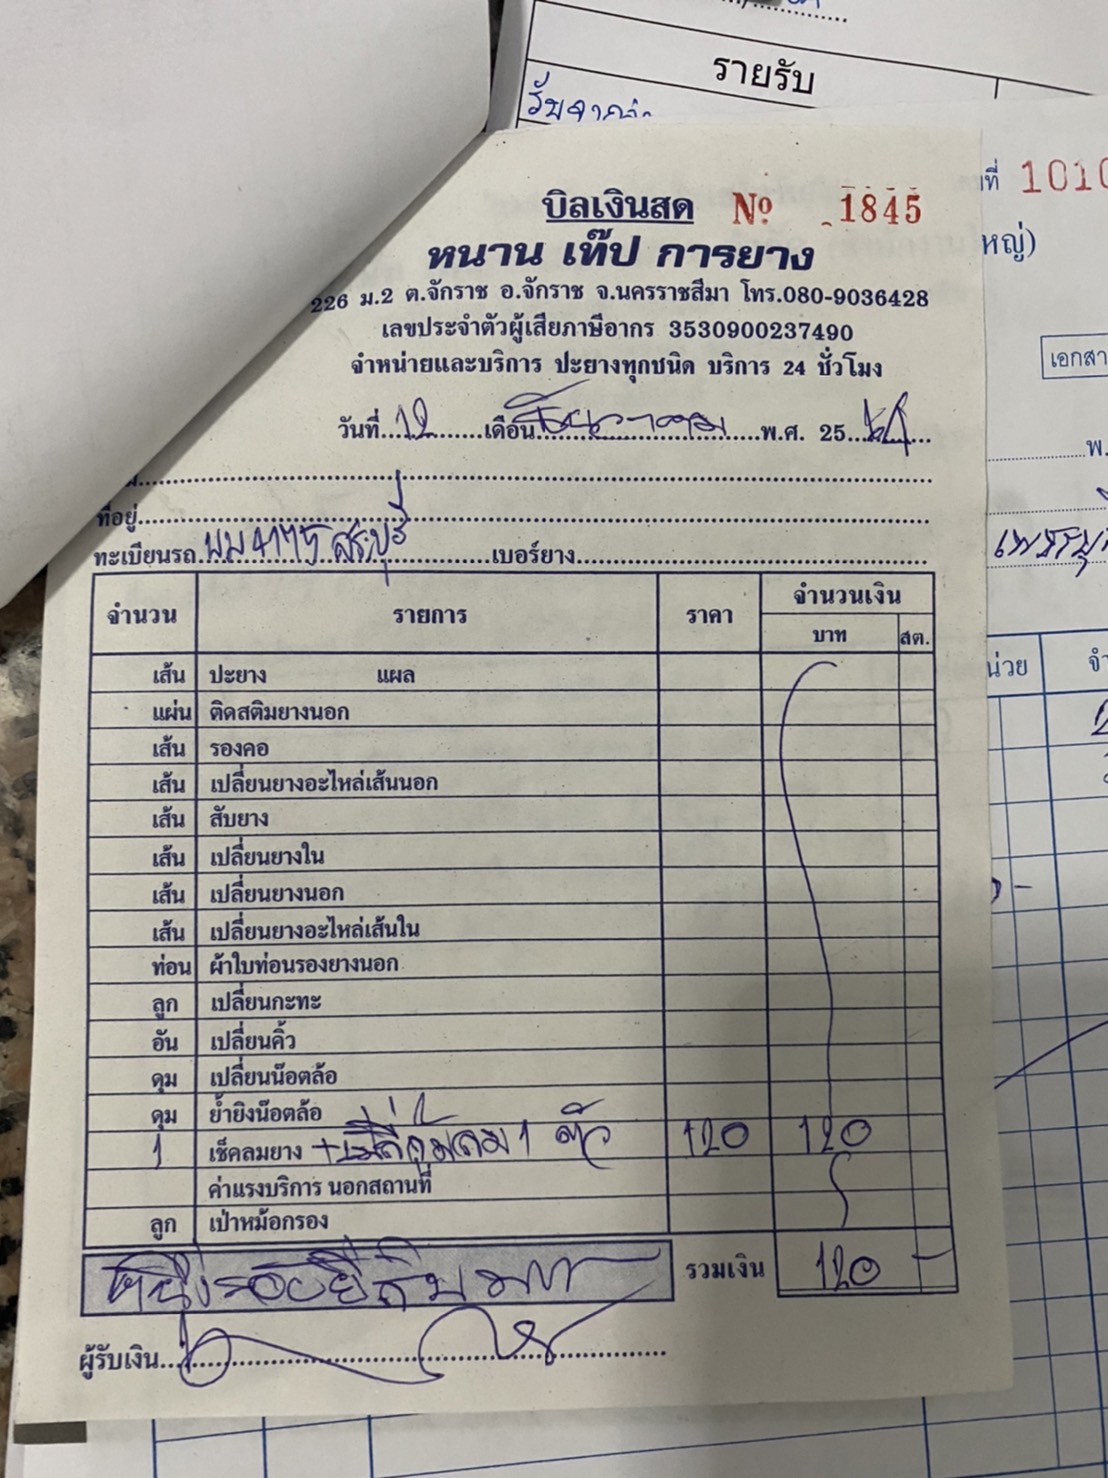 รายรับ
รับจาก
ที่ 1010
หญ่)
เอกสา
พ.
น่วย
จำ
บิลเงินสด Nº 1845
หนาน เท๊ป การยาง
226 ม.2 ต.จักราช อ.จักราช จ.นครราชสีมา โทร.080-9036428
เลขประจำตัวผู้เสียภาษีอากร 3530900237490
จำหน่ายและบริการ ปะยางทุกชนิด บริการ 24 ชั่วโมง
วันที่ 12 เดือน ธันวาคม พ.ศ. 25
ที่อยู่
ทะเบียนรถ สระบุรี เบอร์ยาง
จำนวน รายการ ราคา จำนวนเงิน
บาท สต.
เส้น ปะยาง แผล
แผ่น ติดสติมยางนอก
เส้น รองคอ
เส้น เปลี่ยนยางอะไหล่เส้นนอก
เส้น สับยาง
เส้น เปลี่ยนยางใน
เส้น เปลี่ยนยางนอก
เส้น เปลี่ยนยางอะไหล่เส้นใน
ท่อน ผ้าใบท่อนรองยางนอก
ลูก เปลี่ยนกะทะ
อัน เปลี่ยนคิ้ว
ดุม เปลี่ยนน๊อตล้อ
ดุม ย้ำยิงน๊อตล้อ
1 เช็คลมยาง + 1 ตัว 120 120
ค่าแรงบริการ นอกสถานที่
ลูก เป่าหม้อกรอง
หนึ่งร้อยยี่สิบบาท รวมเงิน 120 -
ผู้รับเงิน